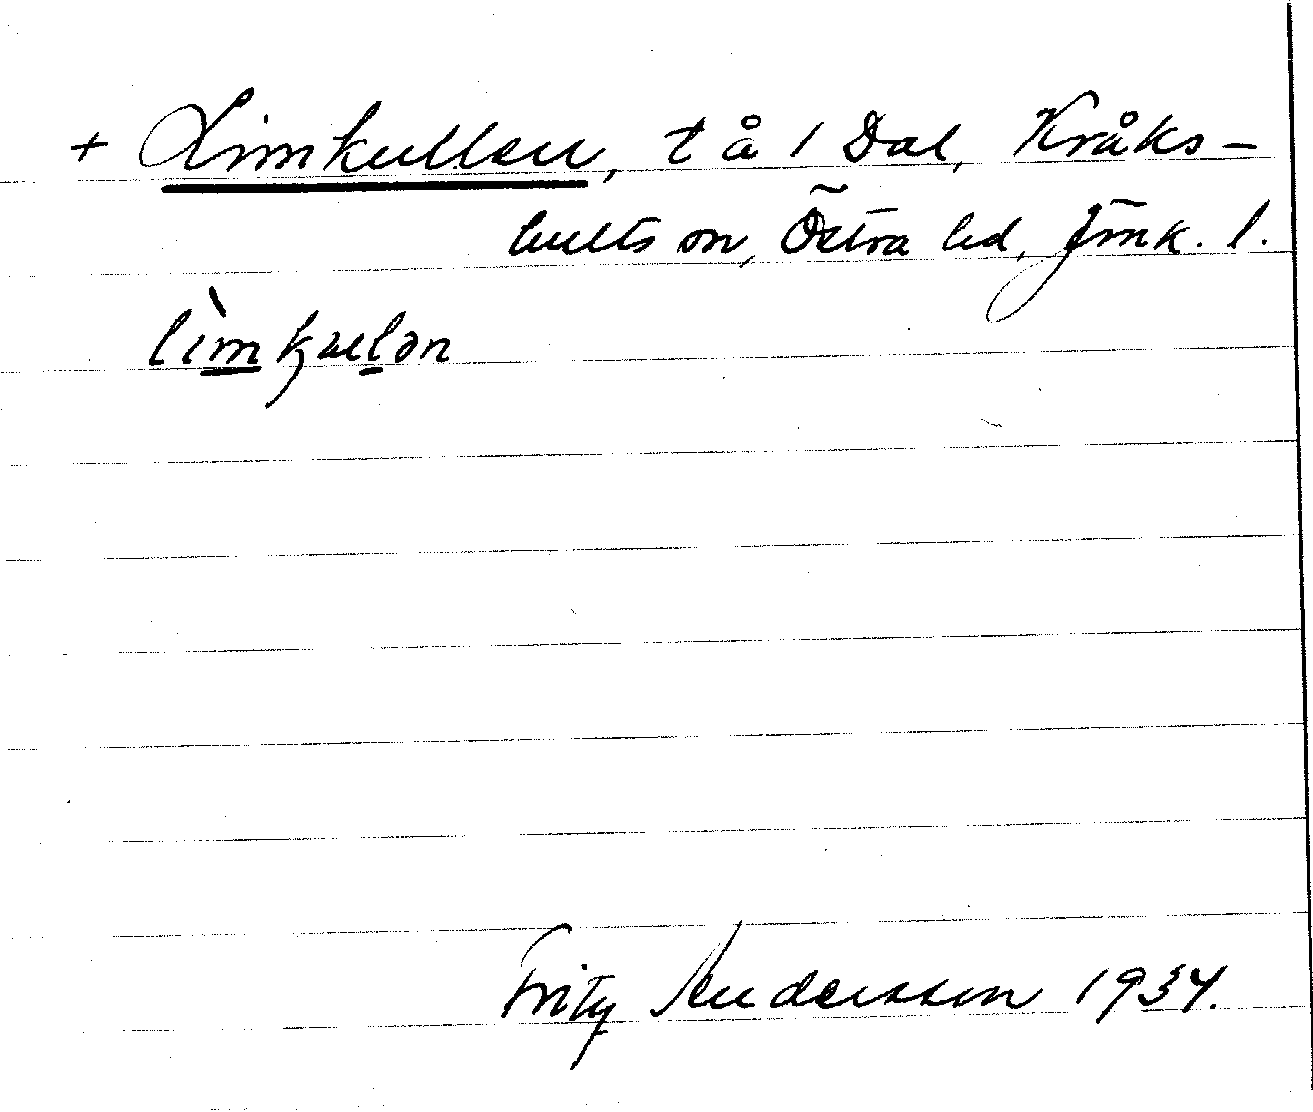 + Limkullen, t å i Dal, Kråks-
hults sn, Östra hd, Jönk. l.
lìmkulən
Fritz Andersson 1934.